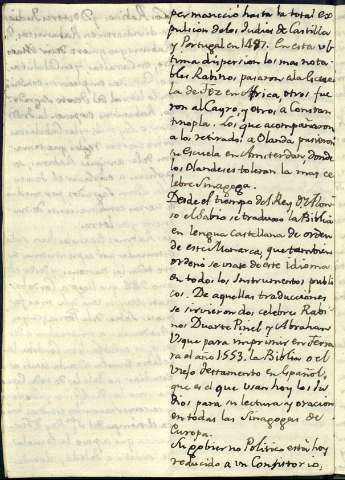 permaneció hasta la total ex
pulsion de los Judios de Castilla
y Portugal en 1497. En esta ul
tima dispersion los mas nota
bles Rabinos, pasaron a la Escue
la de Fez en Africa, otros fue
ron al Cayro, y otros a Constan
tinopla. Los que acompañaron
a los retirados a Olanda pusieron
su Escuela en Amsterdan, donde
los Olandeses toleran la mas ce
lebre Sinagoga.
Desde el tiempo del Rey Dn. Alon
so el Sabio se traduxo la Biblia
en lengua Castellana de orden
de este Monarca, que tambien
ordenó se usase de este idioma
en todos los Instrumentos publi
cos. De aquellas traducciones
se sirvieron dos celebres Rabi
nos Duarte Pinel y Abraham
Usque para imprimir en Ferra
ra el año 1553. la Biblia o el
Viejo testamento en Español,
que es el que usan hoy los Ju
dios para su lectura y oracion
en todas las Sinagogas de
Europa.
Su gobierno Politico està hoy
reducido a un Consistorio,